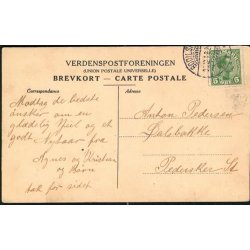 VERDENSPOSTFORENINGEN
(UNION POSTALE UNIVERSELLE)
BREVKORT – CARTE POSTALE
Correspondance
Adresse.
Modtag de bedste
ønsker om en
glædelig Jul og et
godt Nytaar fra
Agnes og Kristian
og Børn
tak for sidst
Anton Pedersen
Dalsbakke
Pedersker St
5 5